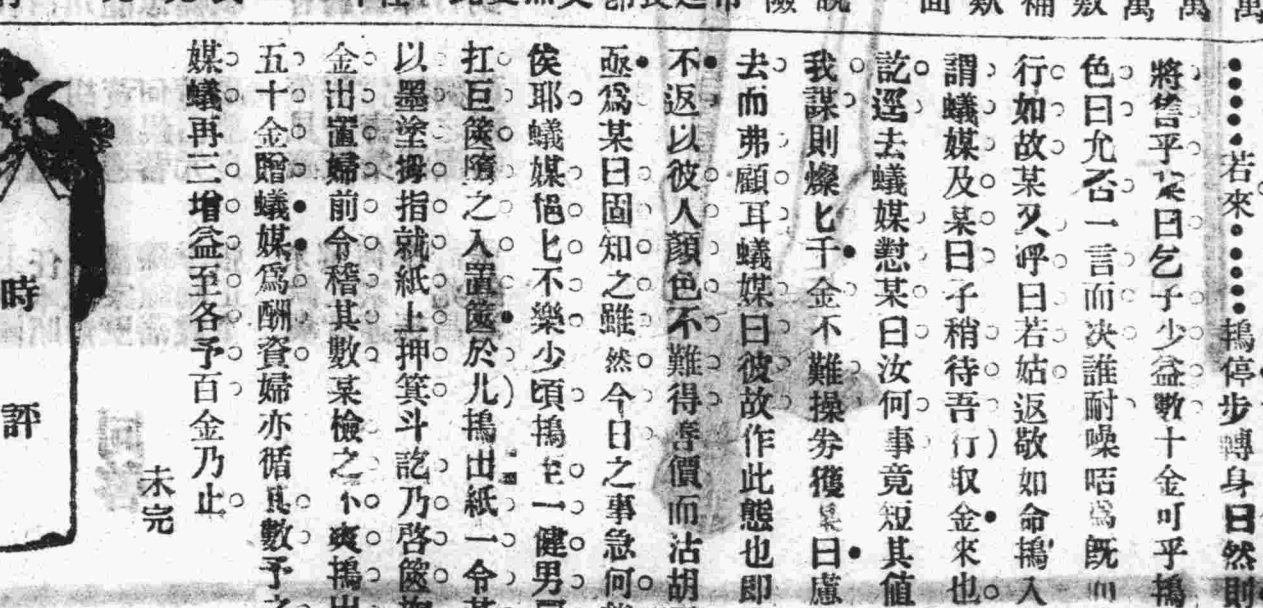 若來鴇停步轉身曰然則
將售乎某曰乞子少益數十金可乎鴇
色曰允否一言而决誰耐噪咶爲既而
行如故某又呼曰若姑返敬如命鴇入
謂蟻媒及某曰子稍待吾行取金來也
訖逕去蟻媒懟某曰汝何事竟短其值
我謀則燦匕千金不難操券獲某曰慮
去而弗顧耳蟻媒曰彼故作此態也即
不返以彼人顏色不難得善價而沽胡
亟爲某曰固知之雖然今日之事急何
俟耶蟻媒悒匕不樂少頃鴇至一健男
扛巨篋隨之入置篋於儿鴇出紙一令
以墨塗拇指就紙上押箕斗訖乃啓篋
金出置婦前令稽其數某檢之不爽鴇出
五十金贈蟻媒爲酬資婦亦循其數予之
媒蟻再三增益至各予百金乃止
未完
時評